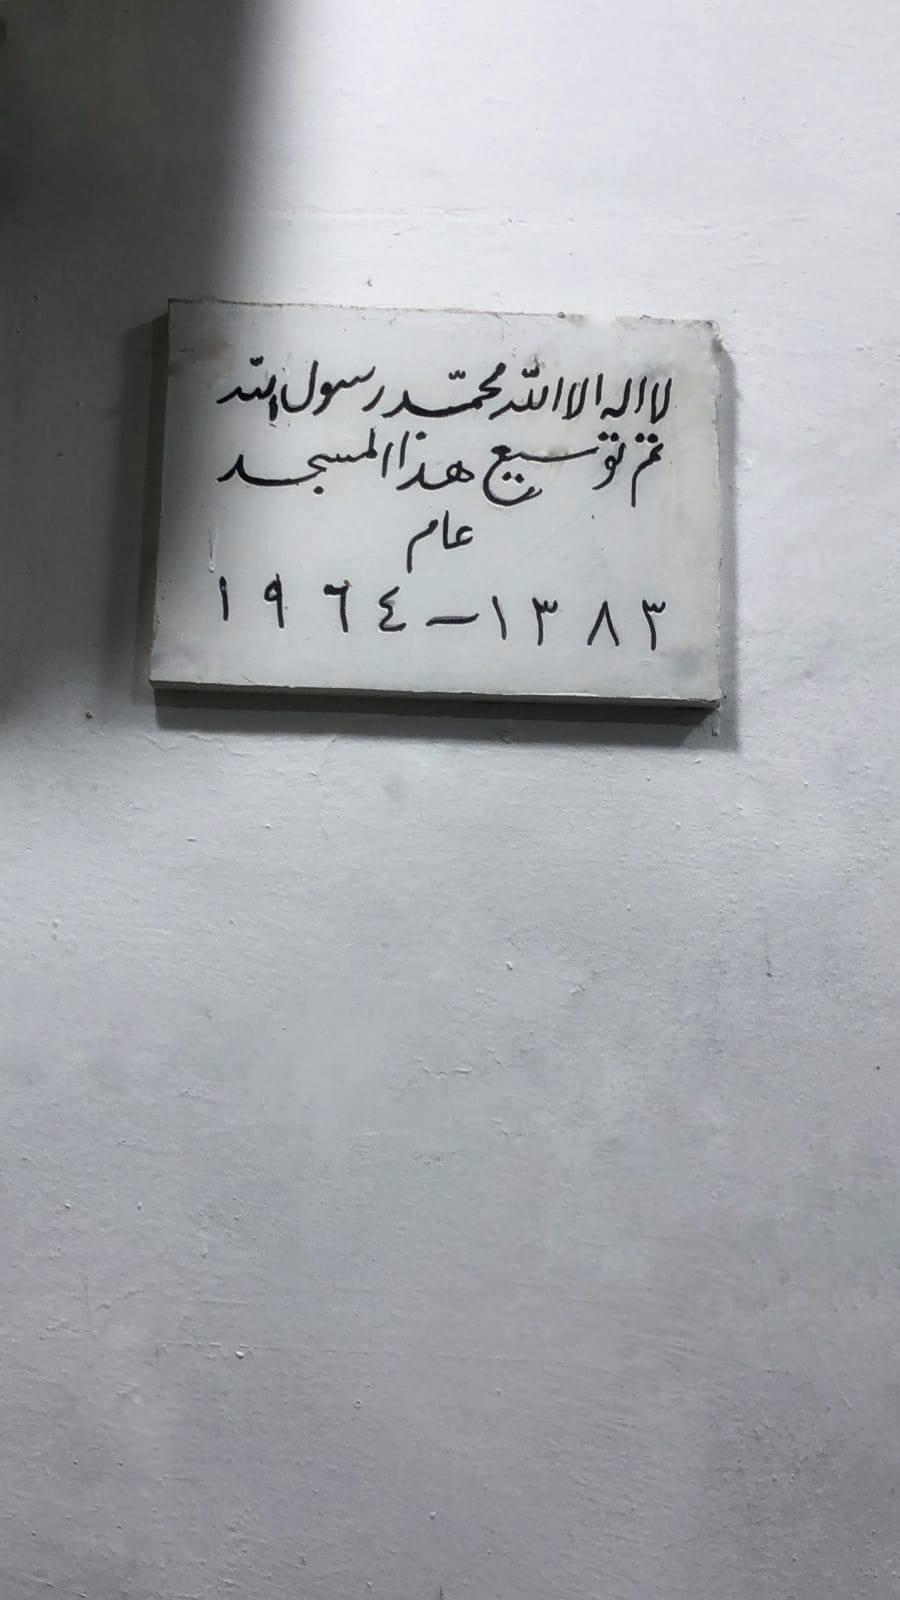 لا اله الا الله محمّد رسول الله
تم توسيع هذا المسجد
عام
١٩٦٤ - ١٣٨٣